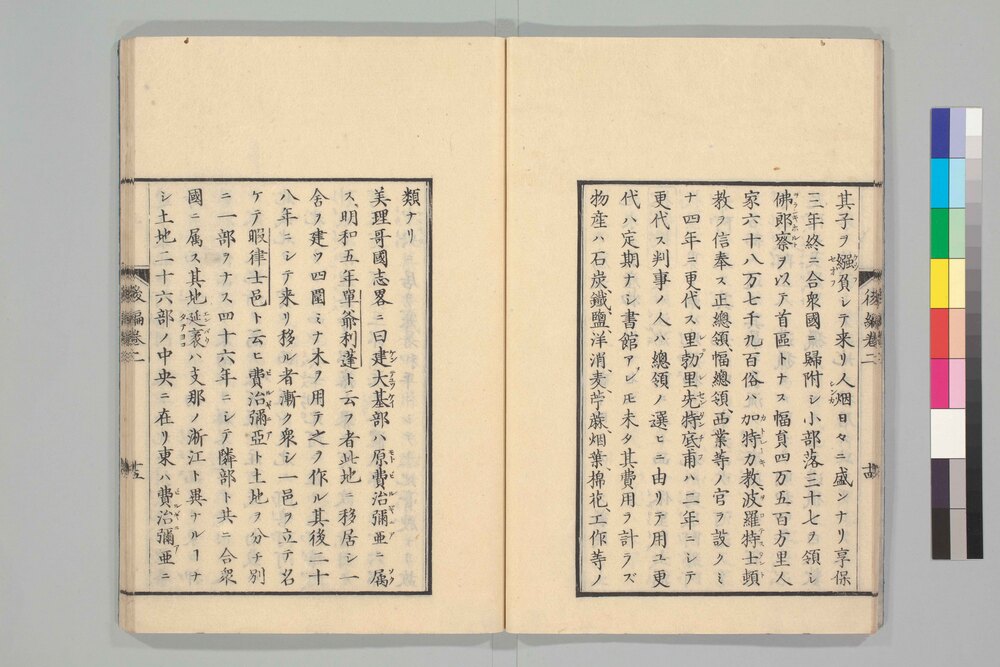 其子ヲ繦負シテ来リ人烟日々ニ盛ンナリ享保
三年終ニ合衆國ニ歸附シ小部落三十七ヲ領シ
佛郎察ヲ以テ首區トナス幅員四万五百方里人
家六十八万七千九百俗ハ加特力教波羅特士頓
教ヲ信奉ス正總領幅總領西業等ノ官ヲ設クミ
ナ四年ニ更代ス里勃里先特底甫ハ二年ニシテ
更代ス判事ノ人ハ總領ノ選ヒニ由リテ用ユ更
代ハ定期ナシ書館アレ𪜈未タ其費用ヲ計ラズ
物産ハ石炭鐵鹽洋消麦苧蔴烟葉棉花工作等ノ
後編卷二
類ナリ
美理哥國志畧ニ曰建大基部ハ原費治彌亜ニ属
ス明和五年單爺利蓬ト云フ者此地ニ移居シ一
舎ヲ建ツ四圍ミナ木ヲ用テ之ヲ作ル其後二十
八年ニシテ来リ移ル者漸ク衆シ一邑ヲ立テ名
ケテ暇律士邑ト云ヒ費治彌亞ト土地ヲ分チ別
ニ一部ヲナス四十六年ニシテ隣部ト共ニ合衆
國ニ属ス其地延袤ハ支那ノ浙江ト異ナルーナ
シ土地二十六部ノ中央ニ在リ東ハ費治彌亜ニ
後編卷二